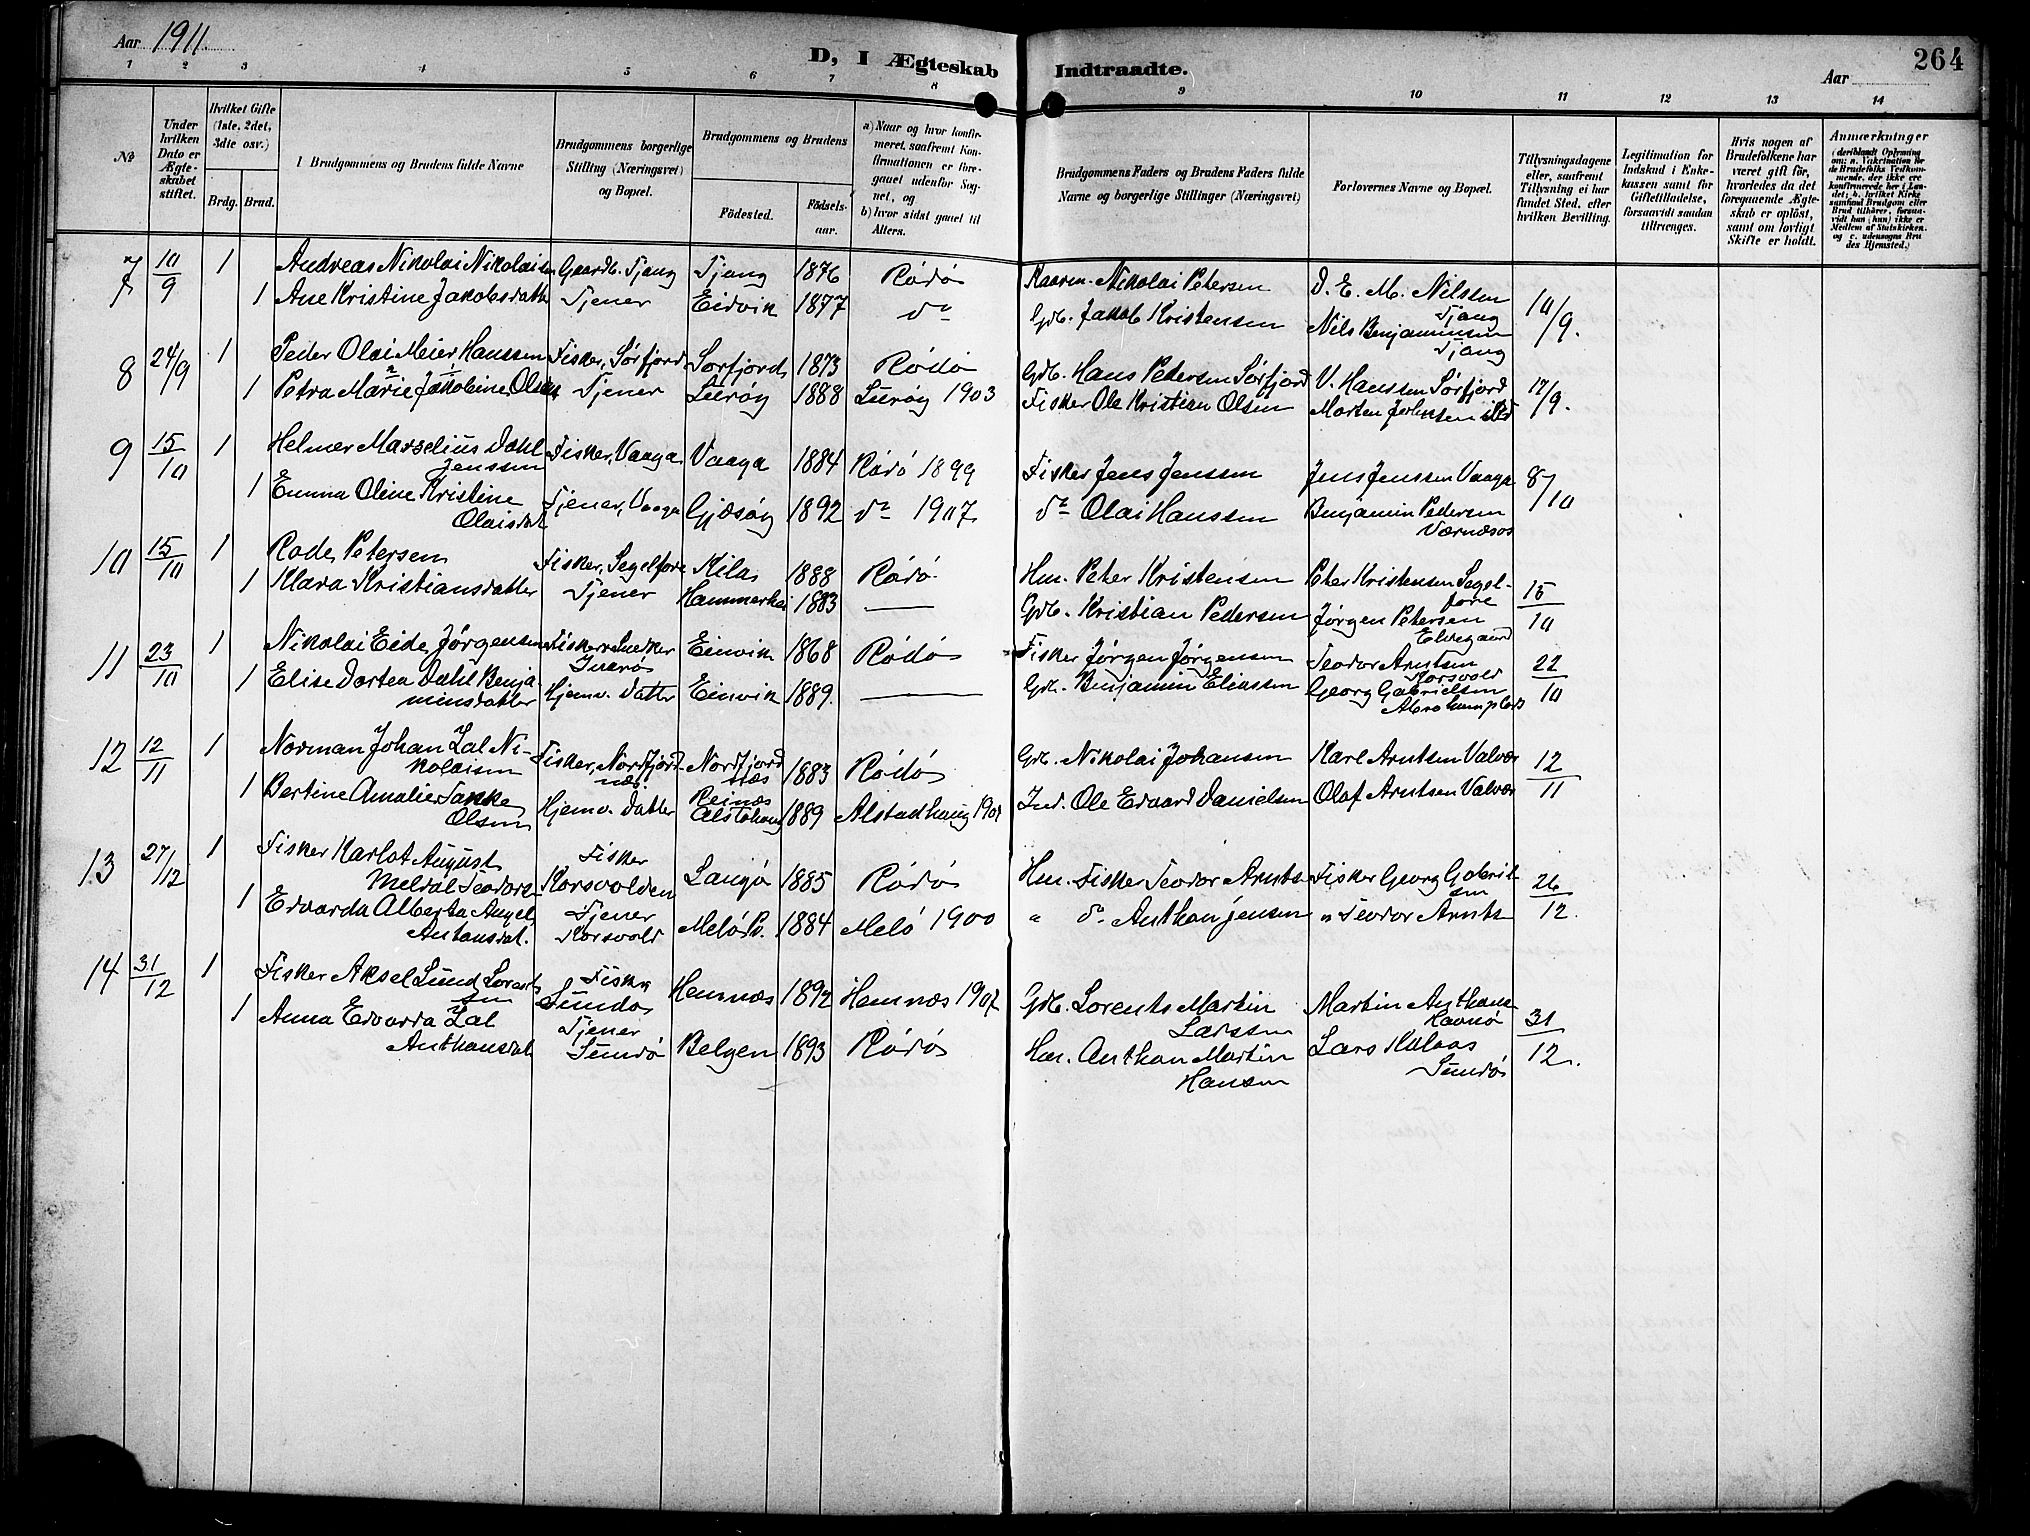 Aar 1911.
D, I Ægteskab Indtraadte.
Aar
264
1 2 3 4 5 6 7 8 9 10 11 12 13 14
№
Under hvilken Dato er Ægteskabet stiftet.
Hvilket Gifte (1ste, 2det, 3die osv.)
Brdg. Brud.
Brudgommens og Brudens fulde Navne
Brudgommens borgerlige Stilling (Næringsvei) og Bopæl.
Brudgommens og Brudens
Födested.
Födselsaar.
a) Naar og hvor konfirmeret, saafremt Konfirmationen er foregaaet udenfor Sognet, og
b) hvor sidst gaaet til Alters.
Brudgommens Faders og Brudens Faders fulde Navne og borgerlige Stillinger (Næringsvei)
Forlovernes Navne og Bopæl.
Tillysningsdagene eller, saafremt Tillysning ei har fundet Sted, efter hvilken Bevilling.
Legitimation for Indskud i Enkekassen samt for Giftetilladelse, forsaavidt saadan tiltrænges.
Hvis nogen af Brudefolkene har været gift før, hvorledes da det foregaaende Ægteskab er opløst, samt om lovligt Skifte er holdt.
Anmærkninger
7 10/9 1 Andreas Nikolai Nikolaisen Gaardb. Tjong Tjong 1876 Rödö Kaarm. Nikolai Petersen D. E. M. Nilssen Tjong 10/9.
1 Ane Kristine Jakobsdatter Tjener Eidvik 1877 do Gdb. Jakob Kristensen Nils Benjaminsen Tjong
8 24/9 1 Peder Olai Meier Hanssen Fisker, Sörfjord Sörfjord 1873 Rödö Gdb. Hans Pedersen Sörfjord V. Hanssen Sörfjord 17/9.
1 Petra Marie Jakobine Olsen Tjener Luröy 1888 Luröy 1903 Fisker Ole Kristian Olsen Morten Johnsen ibd
9 15/10 1 Helmer Marselius Dahl Jenssen Fisker, Vaaga Vaaga 1884 Rödö 1899 Fisker Jens Jenssen Jens Jenssen Vaaga 8/10
1 Emma Oline Kristine Olaisdat Tjener, Vaaga Gjesöy 1892 do 1907 do Olai Hanssen Benjamin Pedersen Værnæsos
10 15/10 1 Rode Petersen Fisker, Segelfore Kila 1888 Rödö Hm. Peter Kristensen Peter Kristensen Segelfore 15/10
1 Klara Kristiansdatter Tjener 1883 Gdb. Kristian Pedersen Jørgen Petersen Elvegaard
11 23/10 1 Nikolai Eide Jørgensen Fisker Snedker Eidvik 1868 Rödö Fisker Jørgen Jørgensen Teodor Arntsen Korsvold 22/10
1 Elise Dortea Dahl Benjaminsdatter Hjemv. Datter Eidvik 1889. Gdb. Benjamin Eliassen Georg Gabrielsen
12 12/11 1 Norman Johan Zal Nikolaisen Fisker, Nordfjordnæs Nordfjordnæs 1883 Rödö Gdb. Nikolai Johansen Karl Arntsen Valvær 12/11
1 Bertine Amalie Olsen Hjemv. Datter Reinæs Alstahaug 1889 Alstadhaug Ind. Ole Edvard Danielsen Olaf Arntsen Valvær
13 27/12 1 Fisker Karlot August Meldal Teodors. Fisker Korsvolden Langö 1885 Rödö Hm. Fisker Teodor Arnts. Fisker Georg Gabrielsen 26/12.
1 Edvarda Alberta Angel Antonsdat. Tjener Korsvold Melö P. 1884 Melö 1900 " do Anthon Jensen " Teodor Arnts.
14 31/12 1 Fisker Aksel Lund Lorentsen Fisker Sundö Hemnæs 1892 Hemnæs 1907 Gdb. Lorents Martin Larssen Martin Anthons. Havnö 31/12.
1 Anna Edvarda Zal Anthonsdat Tjener Sundö Bolgen 1893 Rödö Hm. Anthon Martin Hansen Lars Sundö